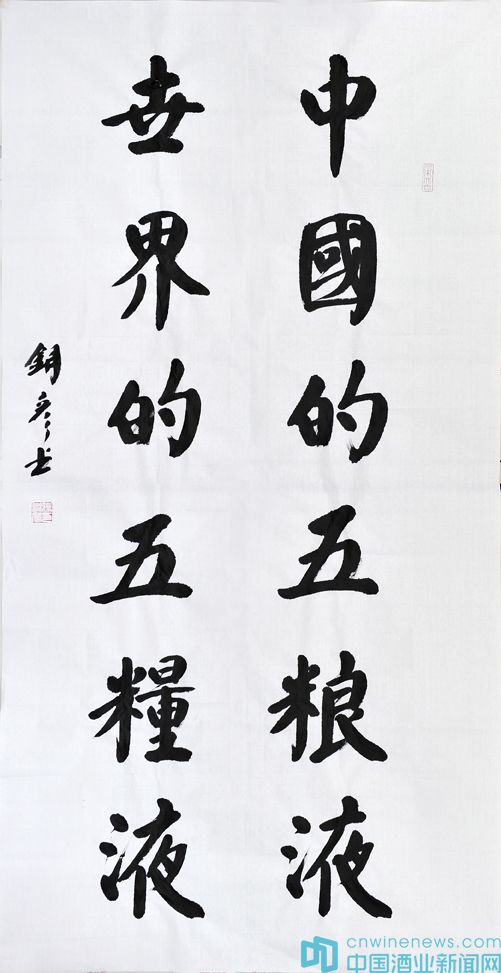 中國的五粮液
世界的五糧液
cnwinenews.com
中国酒业新闻网